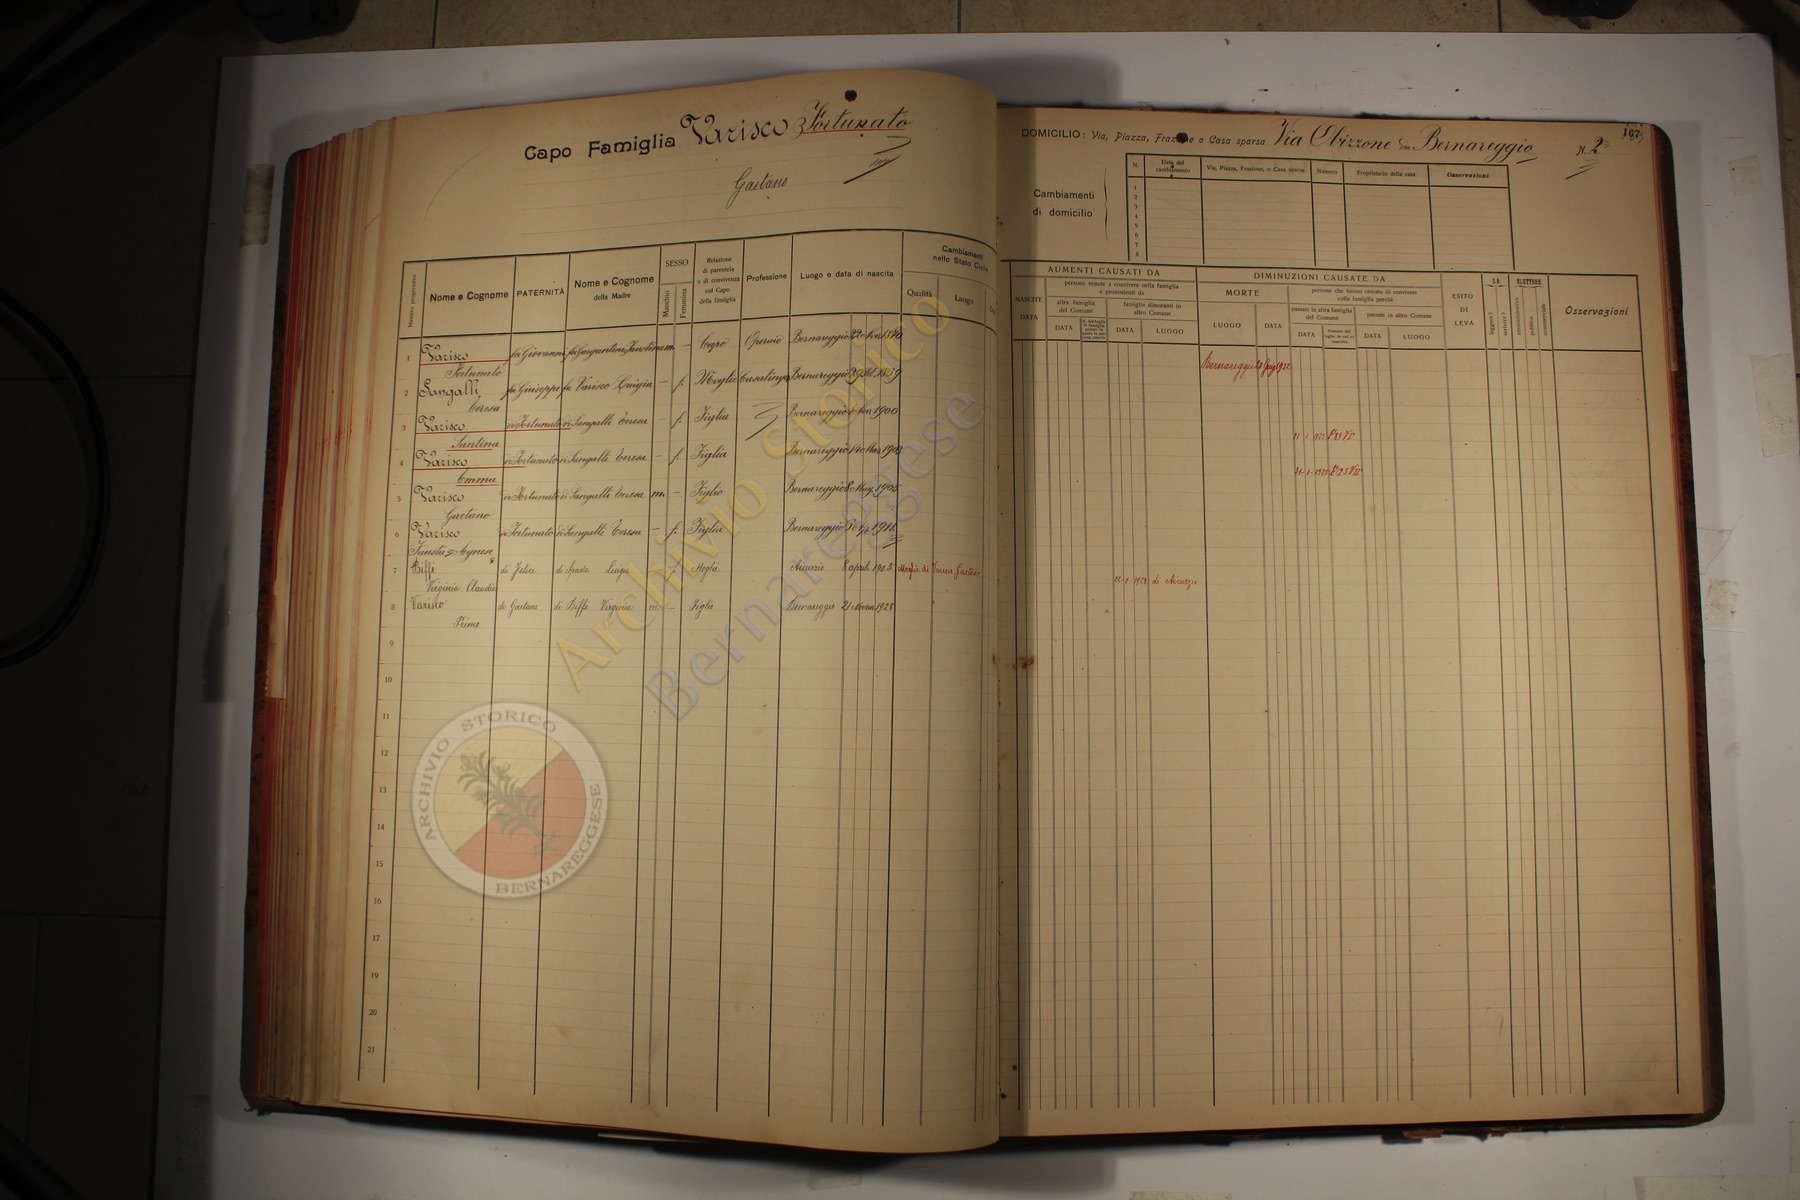 Capo Famiglia Varisco Fortunato
Gaetano
Numero progressivo
Nome e Cognome
PATERNITÀ
Nome e Cognome
della Madre
SESSO
Maschio
Femmina
Relazione
di parentela
o di convivenza
col Capo
della famiglia
Professione
Luogo e data di nascita
Cambiamenti
nello Stato Civile
Qualità
Luogo
1 Varisco fu Giovanni fu Gargantini Faustina m. — Capo Operaio Bernareggio
Fortunato
2 Sangalli fu Giuseppe fu Varisco Luigia — f. Moglie Casalinga Bernareggio
Teresa
3 Varisco di Fortunato di Sangalli Teresa — f. Figlia Bernareggio 1900
Santina
4 Varisco di Fortunato di Sangalli Teresa — f. Figlia Bernareggio 14 Mar. 1903
Emma
5 Varisco di Fortunato di Sangalli Teresa m. — Figlio Bernareggio 8 Mag. 1905
Gaetano
6 Varisco di Fortunato di Sangalli Teresa — f. Figlia Bernareggio
7 Biffi di Felice di Spada Luigia — f. Moglie Aicurzio 8 aprile 1905 Moglie di Varisco Gaetano
Virginia Claudia
8 Varisco di Gaetano di Biffi Virginia m. — Figlio Bernareggio 21 Novem 1928
Primo
9
10
11
12
13
14
15
16
17
18
19
20
21
DOMICILIO: Via, Piazza, Frazione o Casa sparsa Via Obizzone in Bernareggio N. 2
167
Cambiamenti
di domicilio
N.
Data del
cambiamento
Via, Piazza, Frazione, o Casa sparsa
Numero
Proprietario della casa
Osservazioni
1
2
3
4
5
6
7
8
AUMENTI CAUSATI DA
NASCITE
DATA
persone venute a convivere nella famiglia
e provenienti da
altra famiglia
del Comune
famiglie dimoranti in
altro Comune
DATA
DATA
LUOGO
DIMINUZIONI CAUSATE DA
MORTE
LUOGO
DATA
persone che hanno cessato di convivere
colla famiglia perchè
passate in altra famiglia
del Comune
passate in altro Comune
DATA
DATA
LUOGO
ESITO
DI
LEVA
SA
leggere?
scrivere?
ELETTORE
amministrativo
politico
commerciale
Osservazioni
Bernareggio
12-1-1928 di Aicurzio
ARCHIVIO STORICO
BERNAREGGESE
Archivio Storico
Bernareggese